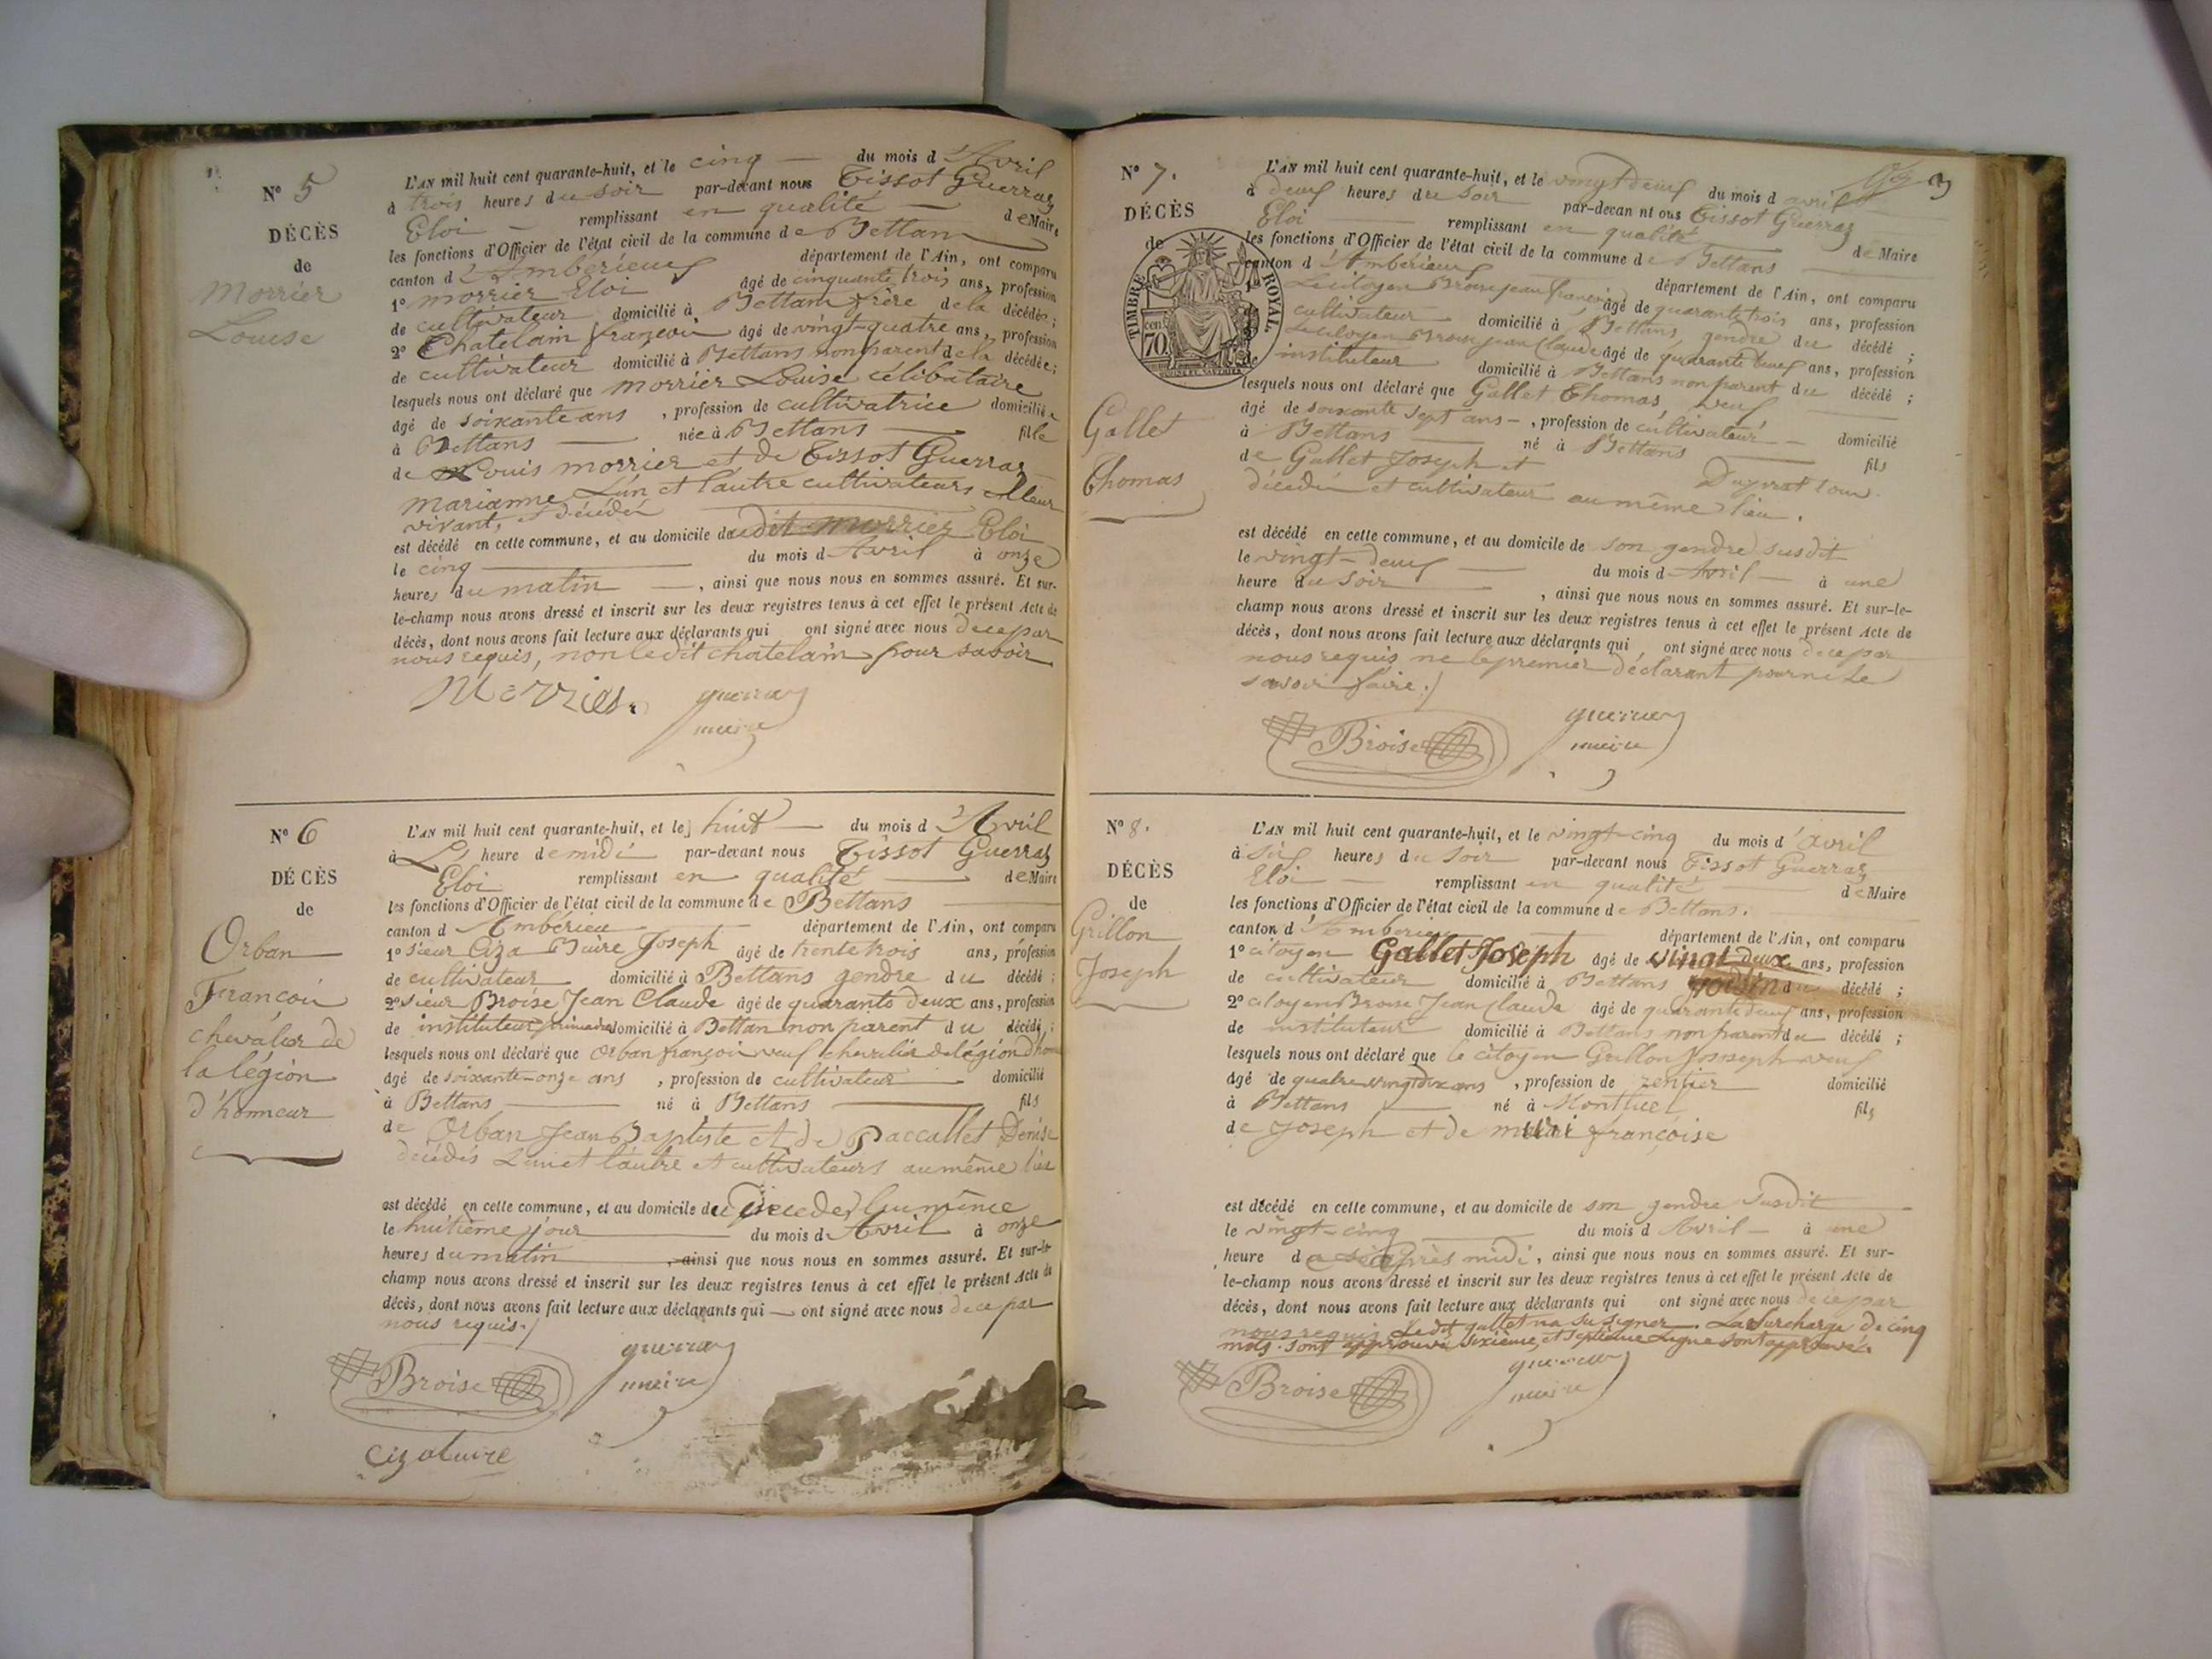 N° 5
DÉCÈS
de
Morrier
Louise
L'AN mil huit cent quarante-huit, et le cinq du mois d'Avril
à trois heures du soir par-devant nous Tissot Guerraz
Eloi remplissant en qualité de Maire
les fonctions d'Officier de l'état civil de la commune de Bettans
canton d'Ambérieux département de l'Ain, ont comparu
1° morrier Eloi âgé de cinquante trois ans, profession
de cultivateur domicilié à Bettans frère de la décédée;
2° Chatelain françois âgé de vingt-quatre ans, profession
de cultivateur domicilié à Bettans non parent de la décédée;
lesquels nous ont déclaré que morrier Louise célibataire
âgé de soixante ans, profession de cultivatrice domiciliée
à Bettans née à Bettans fille
de Louis morrier et de Tissot Guerraz
marianne L'un et l'autre cultivateurs
vivant, et décédés
est décédé en cette commune, et au domicile dudit morrier Eloi
le cinq du mois d'Avril à onze
heures du matin, ainsi que nous nous en sommes assuré. Et sur-
le-champ nous avons dressé et inscrit sur les deux registres tenus à cet effet le présent Acte de
décès, dont nous avons fait lecture aux déclarants qui ont signé avec nous de ce par
nous requis, non le dit chatelain pour savoir
Morrier. guerraz
maire
N° 6
DÉCÈS
de
Orban
François
chevalier de
la légion
d'honneur
L'AN mil huit cent quarante-huit, et le huit du mois d'Avril
à heure de midi par-devant nous Tissot Guerraz
Eloi remplissant en qualité de Maire
les fonctions d'Officier de l'état civil de la commune de Bettans
canton d'Ambérieu département de l'Ain, ont comparu
1° sieur Ciza Buire Joseph âgé de trente trois ans, profession
de cultivateur domicilié à Bettans gendre du décédé;
2° sieur Broise Jean Claude âgé de quarante deux ans, profession
de instituteur primaire domicilié à Bettan non parent du décédé;
lesquels nous ont déclaré que Orban françois veuf chevalier de légion d'hon
âgé de soixante-onze ans, profession de cultivateur domicilié
à Bettans né à Bettans fils
de Orban Jean Baptiste et de Paccallet Denise
décédés L'un et l'autre et cultivateurs au même lieu
est décédé en cette commune, et au domicile du décédé lui même
le huitième jour du mois d'Avril à onze
heures du matin, ainsi que nous nous en sommes assuré. Et sur-le-
champ nous avons dressé et inscrit sur les deux registres tenus à cet effet le présent Acte de
décès, dont nous avons fait lecture aux déclarants qui ont signé avec nous de ce par
nous requis./
Broise guerraz
maire
Cizabuire
3
N° 7.
DÉCÈS
de
TIMBRE ROYAL
70
Gallet
Thomas
L'AN mil huit cent quarante-huit, et le vingt deux du mois d avril
à deux heures du soir par-devan nt ous Tissot Guerraz
Eloi remplissant en qualité de Maire
les fonctions d'Officier de l'état civil de la commune de Bettans
canton d'Ambérieux département de l'Ain, ont comparu
Le citoyen Broise jean françois âgé de quarante trois ans, profession
cultivateur domicilié à Bettans, gendre du décédé;
Le citoyen Broise jean Claude âgé de quarante deux ans, profession
de instituteur domicilié à Bettans non parent du décédé;
lesquels nous ont déclaré que Gallet Thomas, veuf
âgé de soixante sept ans, profession de cultivateur domicilié
à Bettans né à Bettans fils
de Gallet Joseph et
décédés et cultivateurs au même lieu.
est décédé en cette commune, et au domicile de son gendre susdit
le vingt-deux du mois d'Avril à une
heure du soir, ainsi que nous nous en sommes assuré. Et sur-le-
champ nous avons dressé et inscrit sur les deux registres tenus à cet effet le présent Acte de
décès, dont nous avons fait lecture aux déclarants qui ont signé avec nous de ce par
nous requis ne le premier déclarant pour ne le
savoir faire./
Broise guerraz
maire
N° 8.
DÉCÈS
de
Grillon
Joseph
L'AN mil huit cent quarante-huit, et le vingt-cinq du mois d'avril
à six heures du soir par-devant nous Tissot Guerraz
Eloi remplissant en qualité de Maire
les fonctions d'Officier de l'état civil de la commune de Bettans.
canton d'Amberieux département de l'Ain, ont comparu
1° citoyen Gallet Joseph âgé de vingt deux ans, profession
de cultivateur domicilié à Bettans voisin du décédé;
2° citoyen Broise Jean Claude âgé de quarante deux ans, profession
de instituteur domicilié à Bettans non parent du décédé;
lesquels nous ont déclaré que le citoyen Grillon Jososeph veuf
âgé de quatre vingt dix ans, profession de rentier domicilié
à Bettans né à Montluel fils
de Joseph et de françoise
est décédé en cette commune, et au domicile de son gendre susdit
le vingt-cinq du mois d'Avril à une
heure d après midi, ainsi que nous nous en sommes assuré. Et sur-
le-champ nous avons dressé et inscrit sur les deux registres tenus à cet effet le présent Acte de
décès, dont nous avons fait lecture aux déclarants qui ont signé avec nous de ce par
nous requis Ledit gallet na su signer. La Surcharge de cinq
mots. sont approuvé Sixième, et septième Ligne sont approuvé.
Broise guerraz
maire